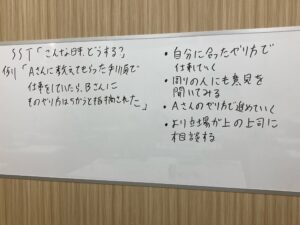 SST「こんな時、どうする?」
例)「Aさんに教えてもらった手順で
仕事をしていたら、Bさんに
そのやり方はちがうと指摘された」
・自分に合ったやり方で
仕事していく
・周りの人にも意見を
聞いてみる
・Aさんのやり方で進めていく
・より立場が上の上司に
相談する